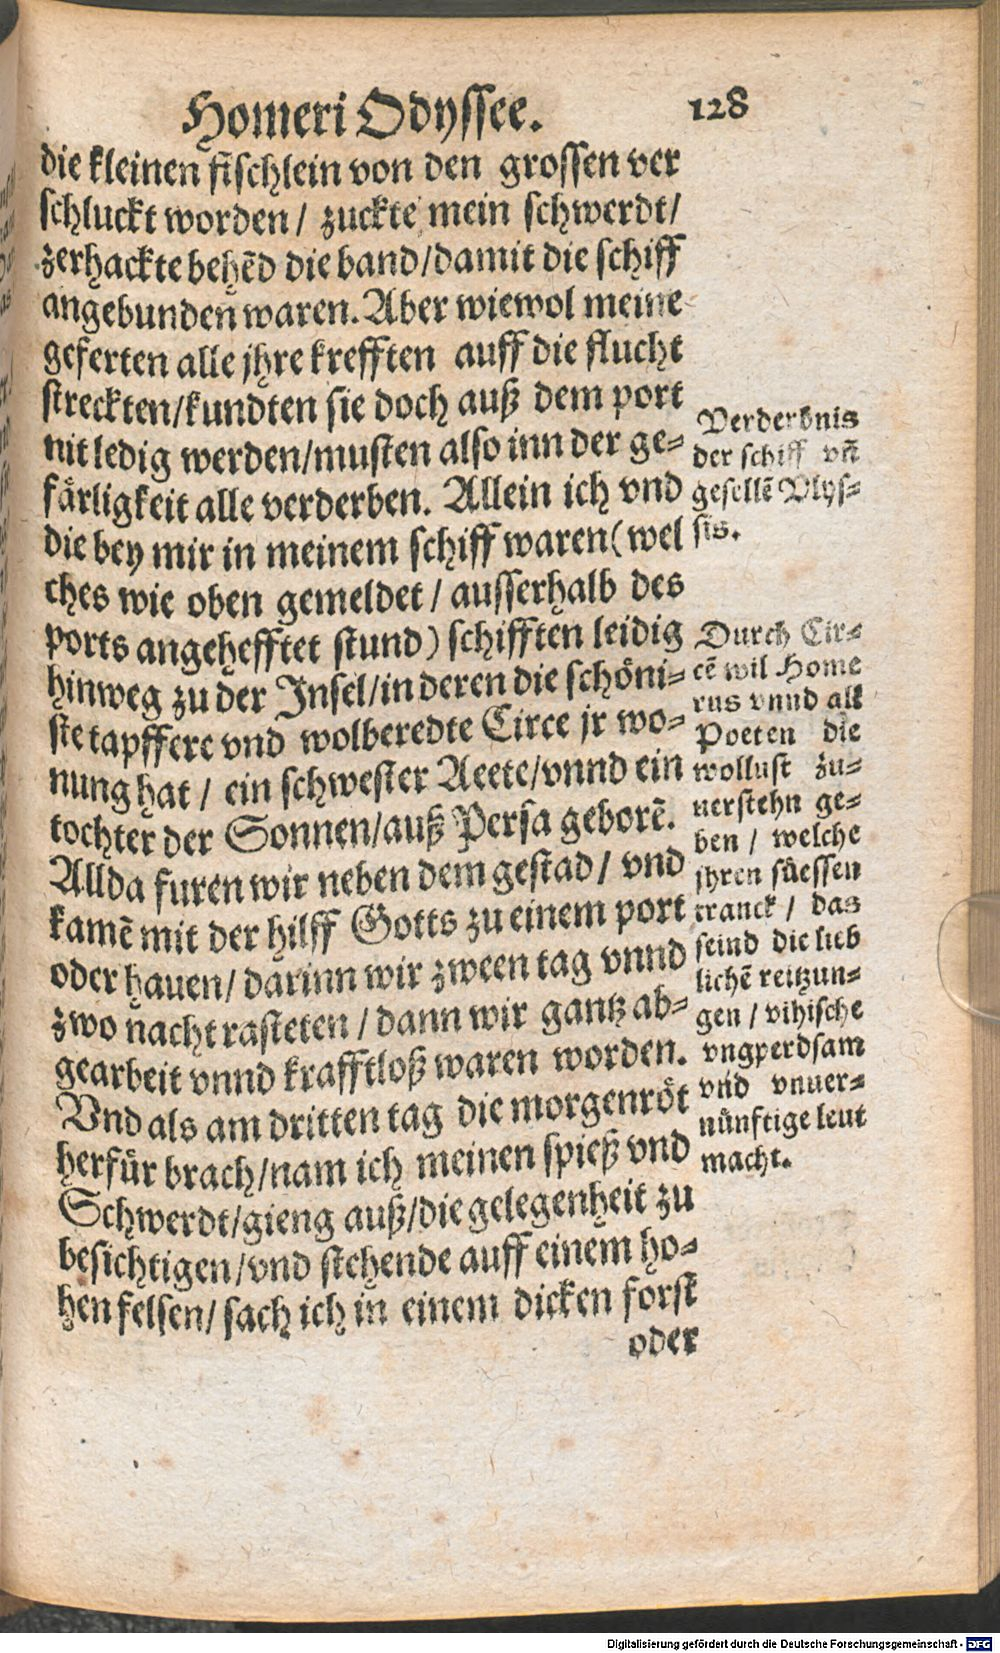 Homeri Odyssee. 128
die kleinen fischlein von den grossen ver
schluckt worden / zuckte mein schwerdt /
zerhackte behẽd die band / damit die schiff
angebunden waren. Aber wiewol meine
geferten alle jhre krefften auff die flucht
streckten / kundten sie doch auß dem port
nit ledig werden / musten also inn der ge⸗
färligkeit alle verderben. Allein ich vnd
die bey mir in meinem schiff waren ( wel
ches wie oben gemeldet / ausserhalb des
ports angehefftet stund ) schifften leidig
hinweg zu der Insel / in deren die schöni⸗
ste tapffere vnd wolberedte Circe jr wo⸗
nung hat / ein schwester Aeete / vnnd ein
tochter der Sonnen / auß Persa geborẽ.
Allda furen wir neben dem gestad / vnd
kamẽ mit der hilff Gotts zu einem port
oder hauen / darinn wir zween tag vnnd
zwo nacht rasteten / dann wir gantz ab⸗
gearbeit vnnd krafftloß waren worden.
Vnd als am dritten tag die morgenröt
herfür brach / nam ich meinen spieß vnd
Schwerdt / gieng auß / die gelegenheit zu
besichtigen / vnd stehende auff einem ho⸗
hen felsen / sach ich in einem dicken forst
oder
Verderbnis
der schiff vñ
gesellẽ Vlys⸗
sis.
Durch Cir⸗
cẽ wil Home
rus vnnd all
Poeten die
wollust zu⸗
uerstehn ge⸗
ben / welche
jhren süessen
tranck / das
seind die lieb
lichẽ reitzun⸗
gen / vihische
vngperdsam
vnd vnuer⸗
nünftige leut
macht.
Digitalisierung gefördert durch die Deutsche Forschungsgemeinschaft - DFG